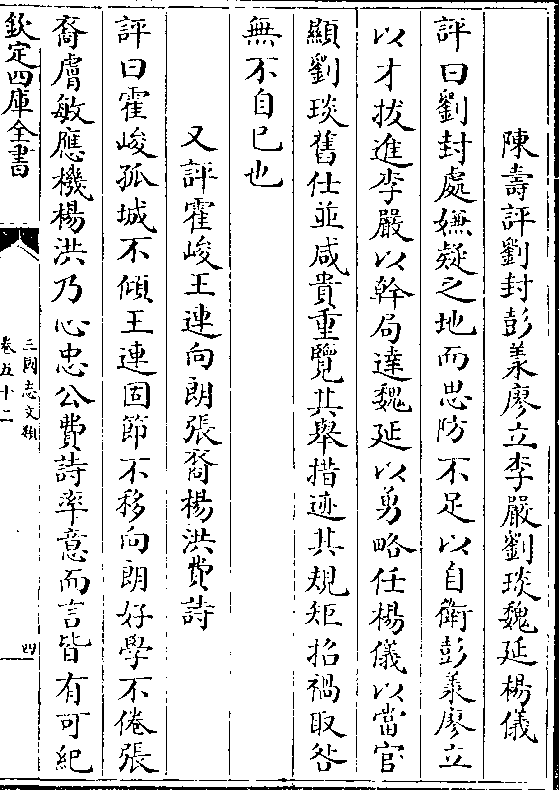 陳壽評劉封彭羕廖立李嚴劉琰魏延楊儀
評曰劉封處嫌疑之地而思防不足以自衛彭羕廖立
以才拔進李嚴以幹局達魏延以勇略任楊儀以當官
顯劉琰舊仕並咸貴重覽其舉措迹其規矩招禍取咎
無不自已也
又評霍峻王連向朗張裔楊洪費詩
評曰霍峻孤城不傾王連固節不移向朗好學不倦張
裔膚敏應機楊洪乃心忠公費詩率意而言皆有可紀
欽定四庫全書
三國志文類
卷五十二
四